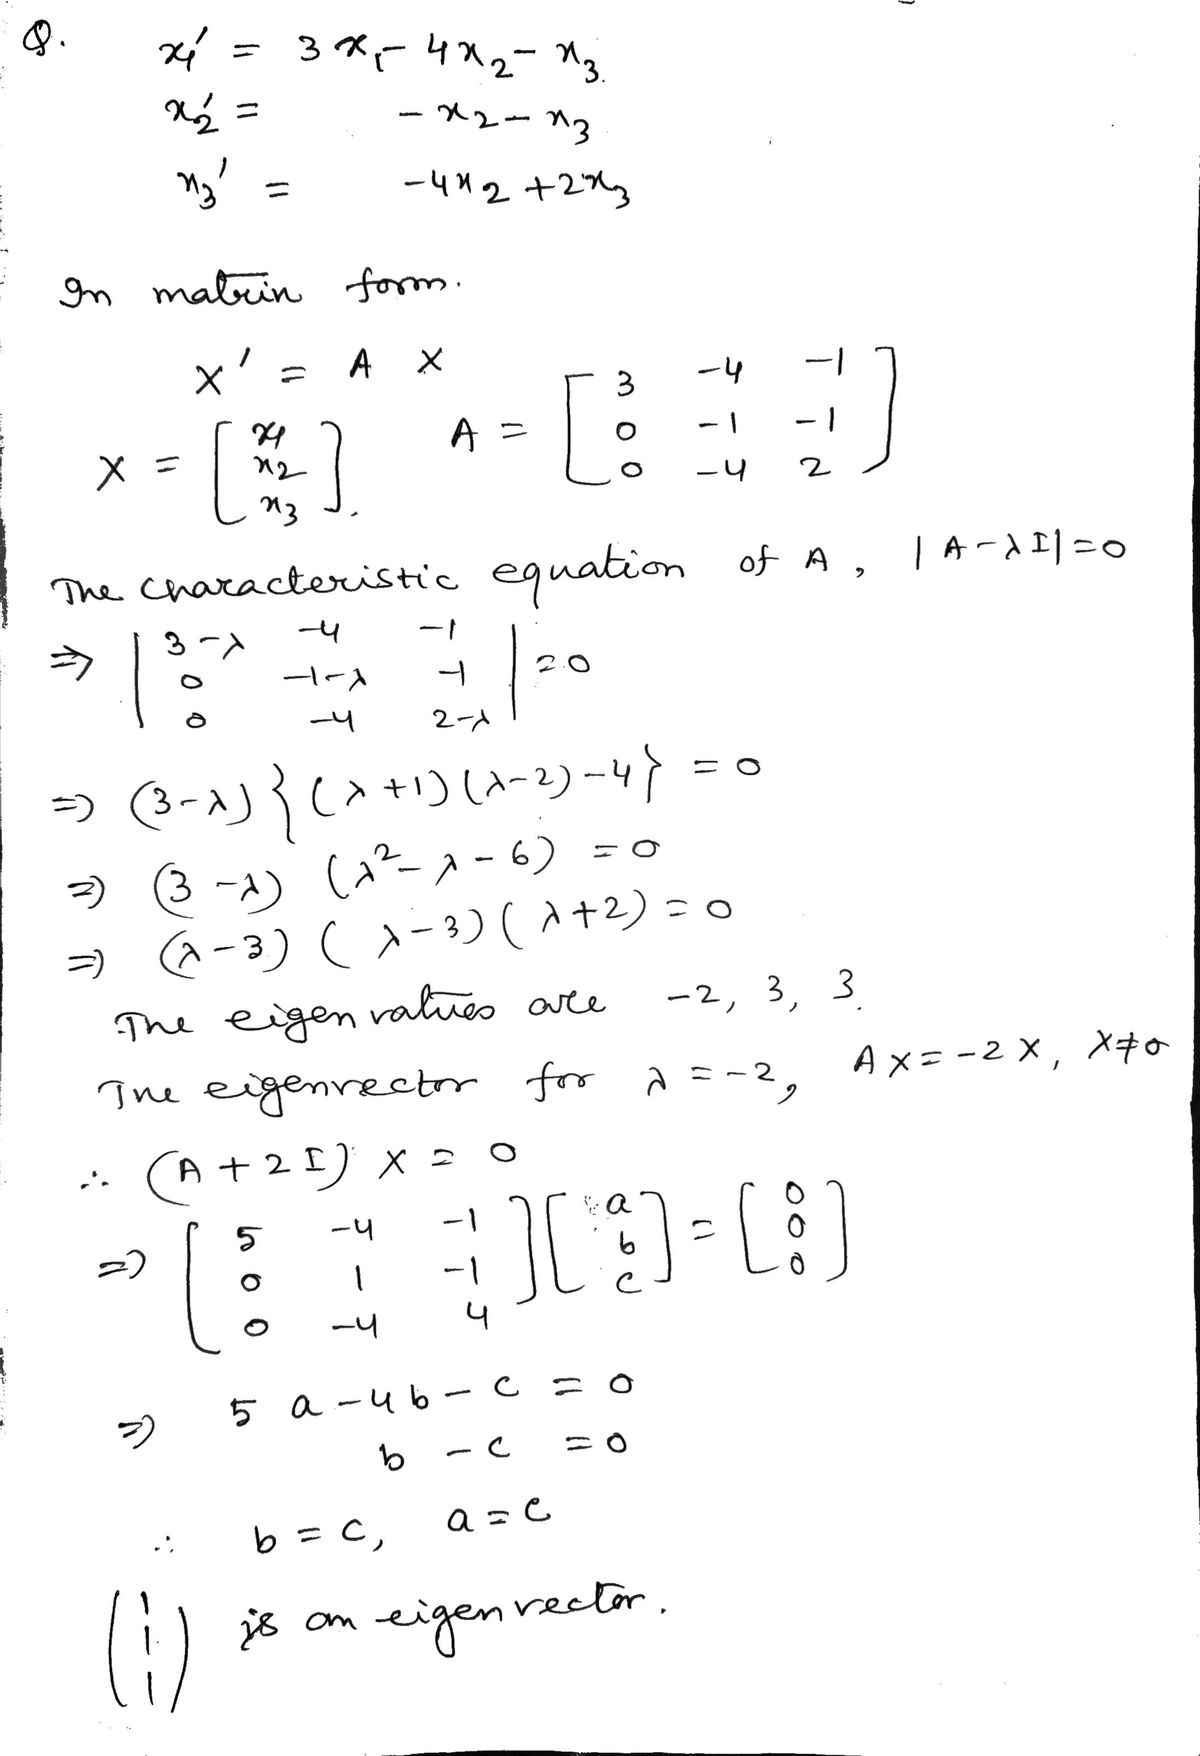 Q. x₁' = 3x₁ - 4x₂ - x₃.
x₂' = - x₂ - x₃
x₃' = -4x₂ + 2x₃
In matrix form.
X' = A X
X = [x₁ x₂ x₃]. A = [3 -4 -1; 0 -1 -1; 0 -4 2]
The characteristic equation of A, |A-λI|=0
⇒ |3-λ -4 -1; 0 -1-λ -1; 0 -4 2-λ| = 0
⇒ (3-λ){(λ+1)(λ-2)-4} = 0
⇒ (3-λ) (λ²-λ-6) = 0
⇒ (λ-3) (λ-3)(λ+2) = 0
The eigenvalues are -2, 3, 3.
The eigenvector for λ = -2, AX = -2X, X≠0
∴ (A+2I) X = 0
⇒ [5 -4 -1; 0 1 -1; 0 -4 4] [a b c] = [0 0 0]
⇒ 5a - 4b - c = 0
b - c = 0
∴ b = c, a = c
(1 1 1) is an eigenvector.